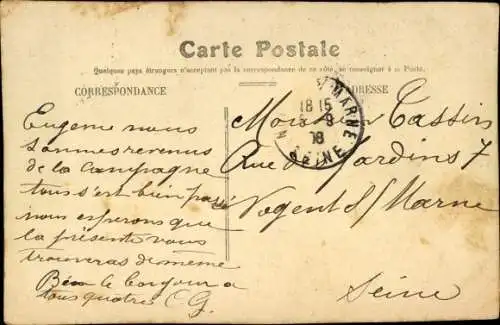 Carte Postale
Quelques pays étrangers n'acceptent pas la correspondance de ce côté, se renseigner à la Poste.
CORRESPONDANCE
ADRESSE
Eugeme nous
sommes revenus
de la campagne
tous s'est bien passé
nous esperons que
la présente vous
trouveras de meme
Bien le bonjour a
tous quatres C G.
MARNE
18 15
8
08
SEINE
Monsieur Tassin
Rue des Jardins 7
Nogent s/ Marne
Seine